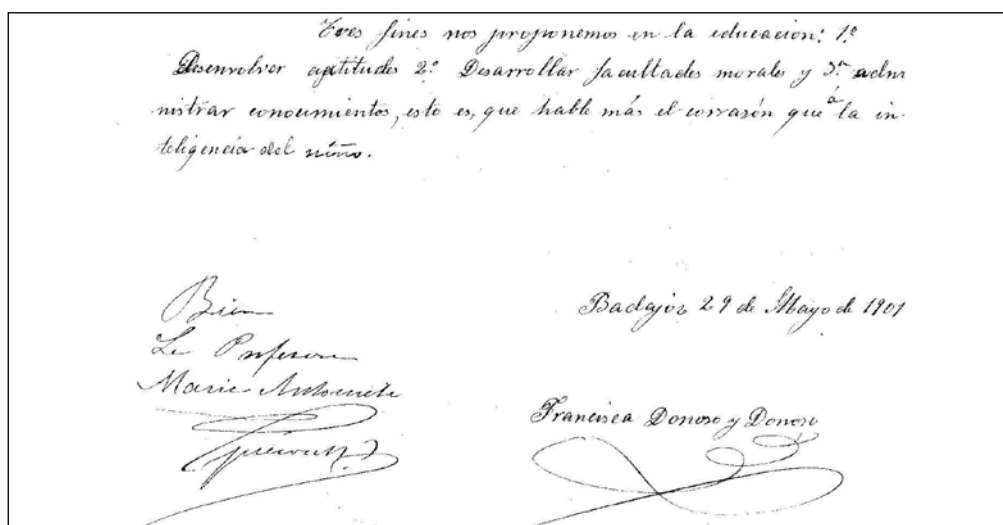 Tres fines nos proponemos en la educación: 1º
Desenvolver aptitudes 2º Desarrollar facultades morales y 3º admi
nistrar conocimientos, esto es, que hable más el corrazón que á la in-
teligencia del niño.
Bien
La Profesora
Badajoz 29 de Mayo de 1901
Maria Antonieta
Francisca Donoso y Donoso